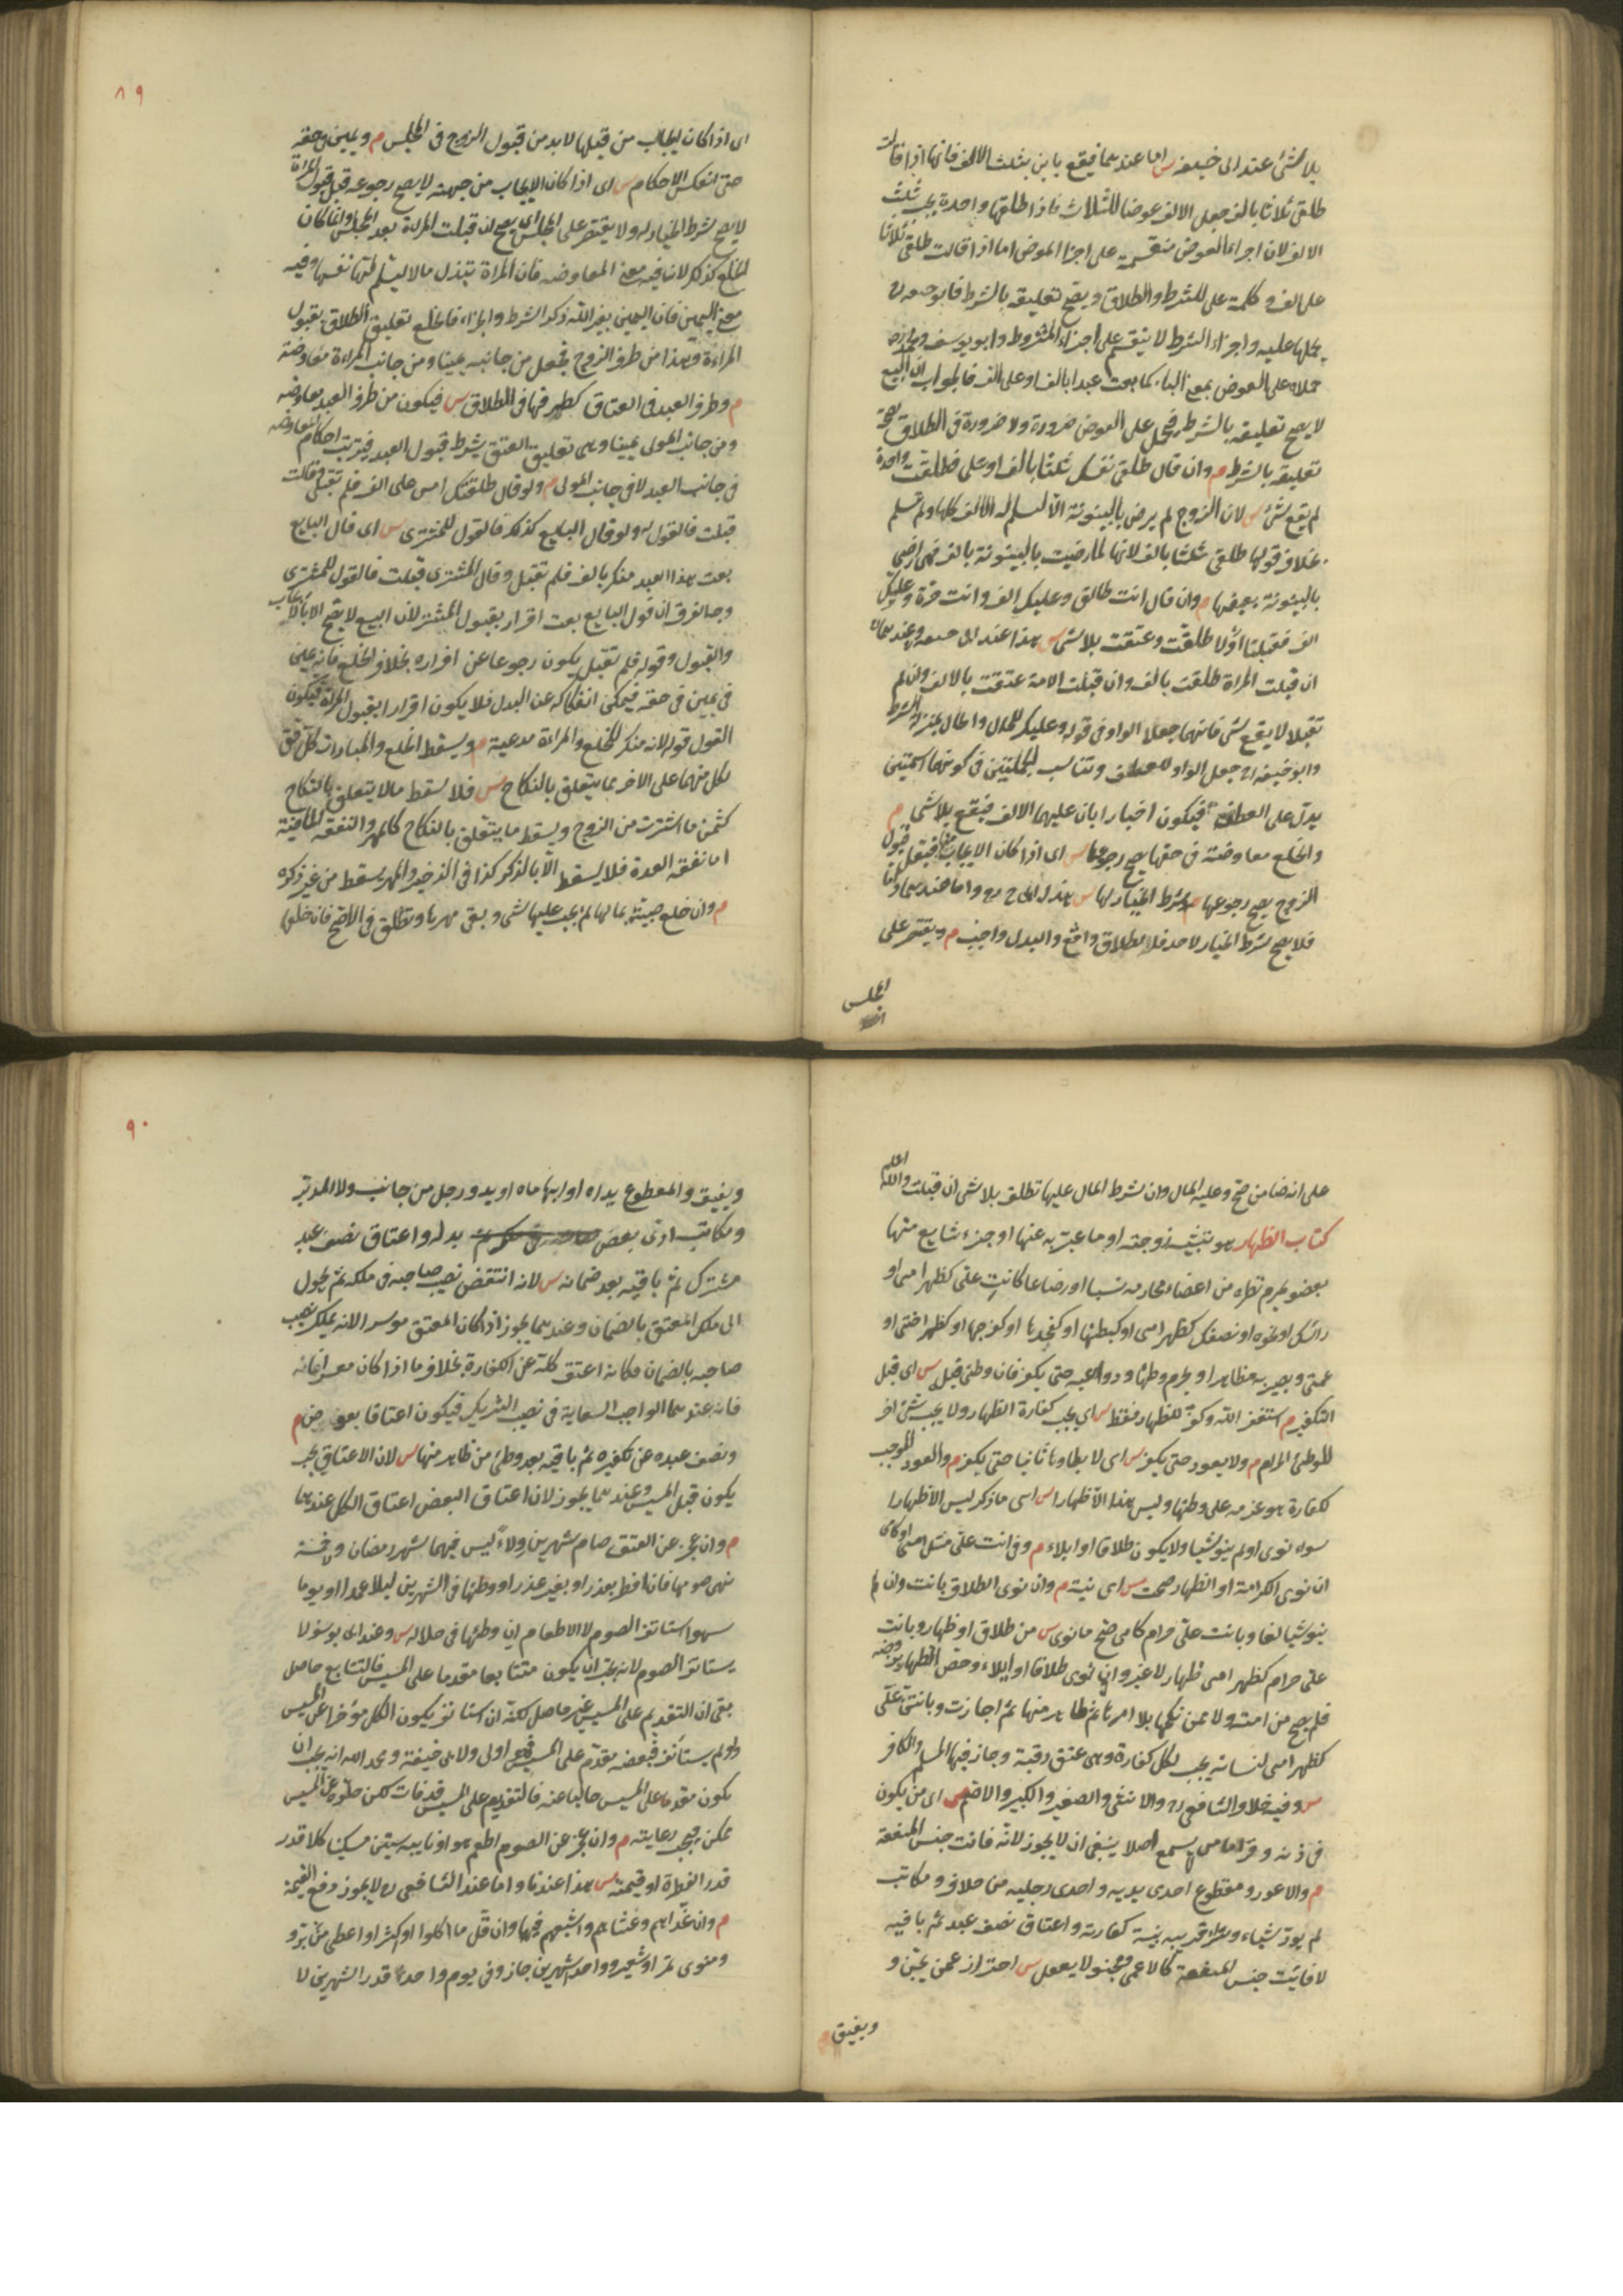 بلا شئ عند ابى حنيفه س اما عندهما فيقع باين بثلث الالف فانها اذا قالت
طلقنى ثلاثا بالف جعل الالف عوضا للثلاث فاذا طلقها واحدة يجب ثلث
الالف لان اجزاء العوض منقسمة على اجزا المعوض اما اذا قالت طلقنى ثلاثا
على الف وكلمة على للشرط والطلاق يصح تعليقه بالشرط فابو حنيفه رح
يحملها عليه واجزاء الشرط لا ينقسم على اجزاء المشروط وابو يوسف ومحمد رح
حملاه على العوض بمعنى الباء كما بعت عبدا بالف او على الف فالجواب ان البيع
لا يصح تعليقه بالشرط فيحمل على العوض ضرورة ولا ضرورة فى الطلاق لصحة
تعليقه بالشرط م وان قال طلقى نفسك ثلثا بالف او على فطلقت واحدة
لم يقع شئ س لان الزوج لم يرض بالبينونة الا ليسلم له الالف كلها ولم تسلم
بخلاف قولها طلقنى ثلثا بالف لانها لما رضيت بالبينونة بالف فهى ارضى
بالبينونة ببعضها م وان قال انت طالق وعليك الف وانت حرة وعليك
الف فقبلتا اولا طلقت وعتقت بلا شئ س هذا عند ابى حنيفه وعندهما
ان قبلت المراة طلقت بالف وان قبلت الامة عتقت بالالف وان لم
تقبلا لا يقع شئ فانهما جعلا الواو فى قوله وعليك للحال والحال بمنزلة الشرط
وابو حنيفه رح جعل الواو للعطف وتناسب الجملتين فى كونهما اسميتين
يدل على العطف فيكون اخبارا بان عليهما الالف فيقع بلا شئ م
والخلع معاوضة فى حقها يصح رجوعها س اى اذا كان الايجاب منها فقبل قبول
الزوج يصح رجوعها م وشرط الخيار لها س هذا
فلا يصح شرط الخيار لاحد فالطلاق واقع والبدل واجب م ويقتصر على
المجلس
اى اذا كان ايجاب من قبلها لا بد من قبول الزوج فى المجلس م ويمين فى حقه
حتى انعكس الاحكام س اى اذا كان الايجاب من جهته لا يصح رجوعه قبل قبول المراة
لا يصح شرط الخيار له ولا يقتصر على المجلس اى يصح ان قبلت المراة بعد المجلس وانما كان
الخلع كذلك لان فيه معنى المعاوضه فان المراة تبذل مالا ليسلم لها نفسها وفيه
معنى اليمين فان اليمين بغير الله ذكر الشرط والجزاء فالخلع تعليق الطلاق بقبول
المراءة وهذا من طرف الزوج فجعل من جانبه يمينا ومن جانب المراءة معاوضة
م وطرف العبد فى العتاق كطرفها فى الطلاق س فيكون من طرف العبد معاوضه
ومن جانب المولى يمينا وهى تعليق العتق بشرط قبول العبد فيترتب احكام المعاوضه
فى جانب العبد لا فى جانب المولى م ولو قال طلقتك امس على الف فلم تقبلى وقالت
قبلت فالقول له ولو قال البايع كذلك فالقول للمشترى س اى قال البايع
بعت هذا العبد منك بالف فلم تقبل وقال المشترى قبلت فالقول للمشترى
وجه الفرق ان قول البايع بعت اقرار بقبول المشترى لان البيع لا يصح الا بالايجاب
والقبول وقوله فلم تقبل يكون رجوعا عن اقراره بخلاف الخلع فانه
فى يمين فى حقه فيمكن انفكاكه عن البدل فلا يكون اقرارا بقبول المراة فيكون
القول قوله لانه منكر للخلع والمراءة مدعية م ويسقط الخلع والمبارات كل حق
لكل منهما على الاخر مما يتعلق بالنكاح س فلا يسقط ما لا يتعلق بالنكاح
كثمن ما اشترت من الزوج ويسقط ما يتعلق بالنكاح كالمهر والنفقه الماضية
اما نفقه العدة فلا يسقط الا بالذكر كذا فى الذخيره والمهر يسقط من غير ذكره
م وان خلع صبيته بمالها لم يجب عليها شئ وبقى مهرها وتطلق فى الاصح فان خلعها
٨٩
على انه ضامن صح وعليه المال وان شرط المال عليها تطلق بلا شئ ان قبلت والله اعلم
كتاب الظهار هو تشبيه زوجته او ما عبر به عنها او جزء شايع منها
بعضو يحرم نظره من اعضاء محارمه نسبا او رضاعا كانت على كظهر امى او
راسك او نحوه او نصفك كظهر امى او كبطنها او كفخذها او كفرجها او كظهر اختى او
عمتى ويصير به مظاهرا ويحرم وطئها ودواعيه حتى يكفر فان وطئ قبل س اى قبل
التكفير م استغفر الله وكفر للظهار فقط س اى يجب كفارة الظهار ولا يجب شئ اخر
للوطئ الحرام م ولا يعود حتى يكفر س اى لا يطاوها ثانيا حتى يكفر م والعود الموجب
لكفارة هو عزمه على وطئها وليس هذا الا ظهارا س اى ما ذكر ليس الا ظهارا
سواء نوى او لم ينو شيا ولا يكون طلاقا او ايلاء م وفى انت على مثل امى او كامى
ان نوى الكرامة او الظهار صحت س اى نيته م وان نوى الطلاق بانت وان لم
ينو شيا لغا وبانت على حرام كامى صح ما نوى س من طلاق او ظهار وبانت
على حرام كظهر امى ظهار لا غير وان نوى طلاقا او ايلاء وخص الظهار بزوجته
فلم يصح من امته ولا ممن نكحها بلا امرها ثم ظاهر منها ثم اجازت وبانتن على
كظهر امى لنسائه يجب لكل كفارة وهى عتق رقبة وجاز فيها المسلم والكافر
س وفيه خلاف الشافعى رح والانثى والصغير والكبير والاصم س اى من يكون
فى اذنه وقر اما من لم يسمع اصلا ينبغى ان لا يجوز لانه فانت جنس المنفعة
م والاعور ومقطوع احدى يديه واحدى رجليه من خلاف ومكاتب
لم يود شياء وشراء قريبه بنية كفارته واعتاق نصف عبد ثم باقيه
لا فائت جنس المنفعة كالاعمى ومجنون لا يعقل س احتراز عمن يجن و
ويفيق
ويفيق والمقطوع يداه او ابهاماه او يد ورجل من جانب ولا المدبر
ومكاتب ادى بعض بدله واعتاق نصف عبد
مشترك ثم باقيه بعد ضمانه س لانه انتقض نصيب صاحبه فى ملكه ثم تحول
الى ملك المعتق بالضمان وعندهما يجوز اذا كان المعتق موسرا لانه يملك نصيب
صاحبه بالضمان فكانه اعتق كله عن الكفارة بخلاف ما اذا كان معسرا فانه
فانه عندهما الواجب السعاية فى نصيب الشريك فيكون اعتاقا بعوض م
ونصف عبده عن تكفيره ثم باقيه بعد وطئ من ظاهر منها س لان الاعتاق يجب
يكون قبل المسيس وعندهما يجوز لان اعتاق البعض اعتاق الكل عندهما
م وان عجز عن العتق صام شهرين ولاء ليس فيهما شهر رمضان ولا خمسة
نهى صومها فان افطر بعذر او بغير عذر او وطئها فى الشهرين ليلا عمدا او يوما
سهوا استانف الصوم لا الاطعام ان وطئها فى خلاله س وعند ابى يوسف لا
يستانف الصوم لانه يجب ان يكون متتابعا مقدما على المسيس فالتتابع حاصل
بقى ان التقديم على المسيس غير حاصل لكنه ان استانف يكون الكل مؤخرا عن المسيس
ولو لم يستانف فبعضه مقدم على المسيس اولى ولابى حنيفة ومحمد الله انه يجب ان
يكون مقدما على المسيس خاليا عنه فالتقديم على المسيس قد فات لكن خلوه عن المسيس
ممكن فيجب رعايته م وان عجز عن الصوم اطعم هو او نايبه ستين مسكينا كلا قدر
قدر الفطرة او قيمته س هذا عندنا واما عند الشافعى رح لا يجوز دفع القيمة
م وان غداهم وعشاهم واشبعهم فيهما وان قل ما اكلوا او اكثر او اعطى من بر و
ومنوى تمر او شعير وواحدا شهرين جاز وفى يوم واحد قدر الشهرين لا
٩٠